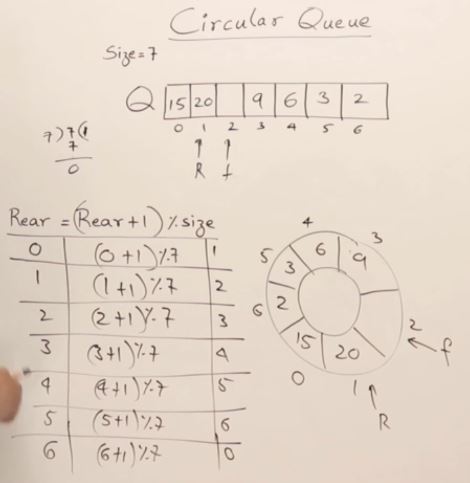 Circular Queue
Size=7
Q 15 20 9 6 3 2
0 1 2 3 4 5 6
R f
7)7(1
7
0
Rear = (Rear+1) % size
0 (0+1)%7 1
1 (1+1)%7 2
2 (2+1)%7 3
3 (3+1)%7 4
4 (4+1)%7 5
5 (5+1)%7 6
6 (6+1)%7 0
4
5 6 9 3
3
6 2
15 20 2 f
0 1
R